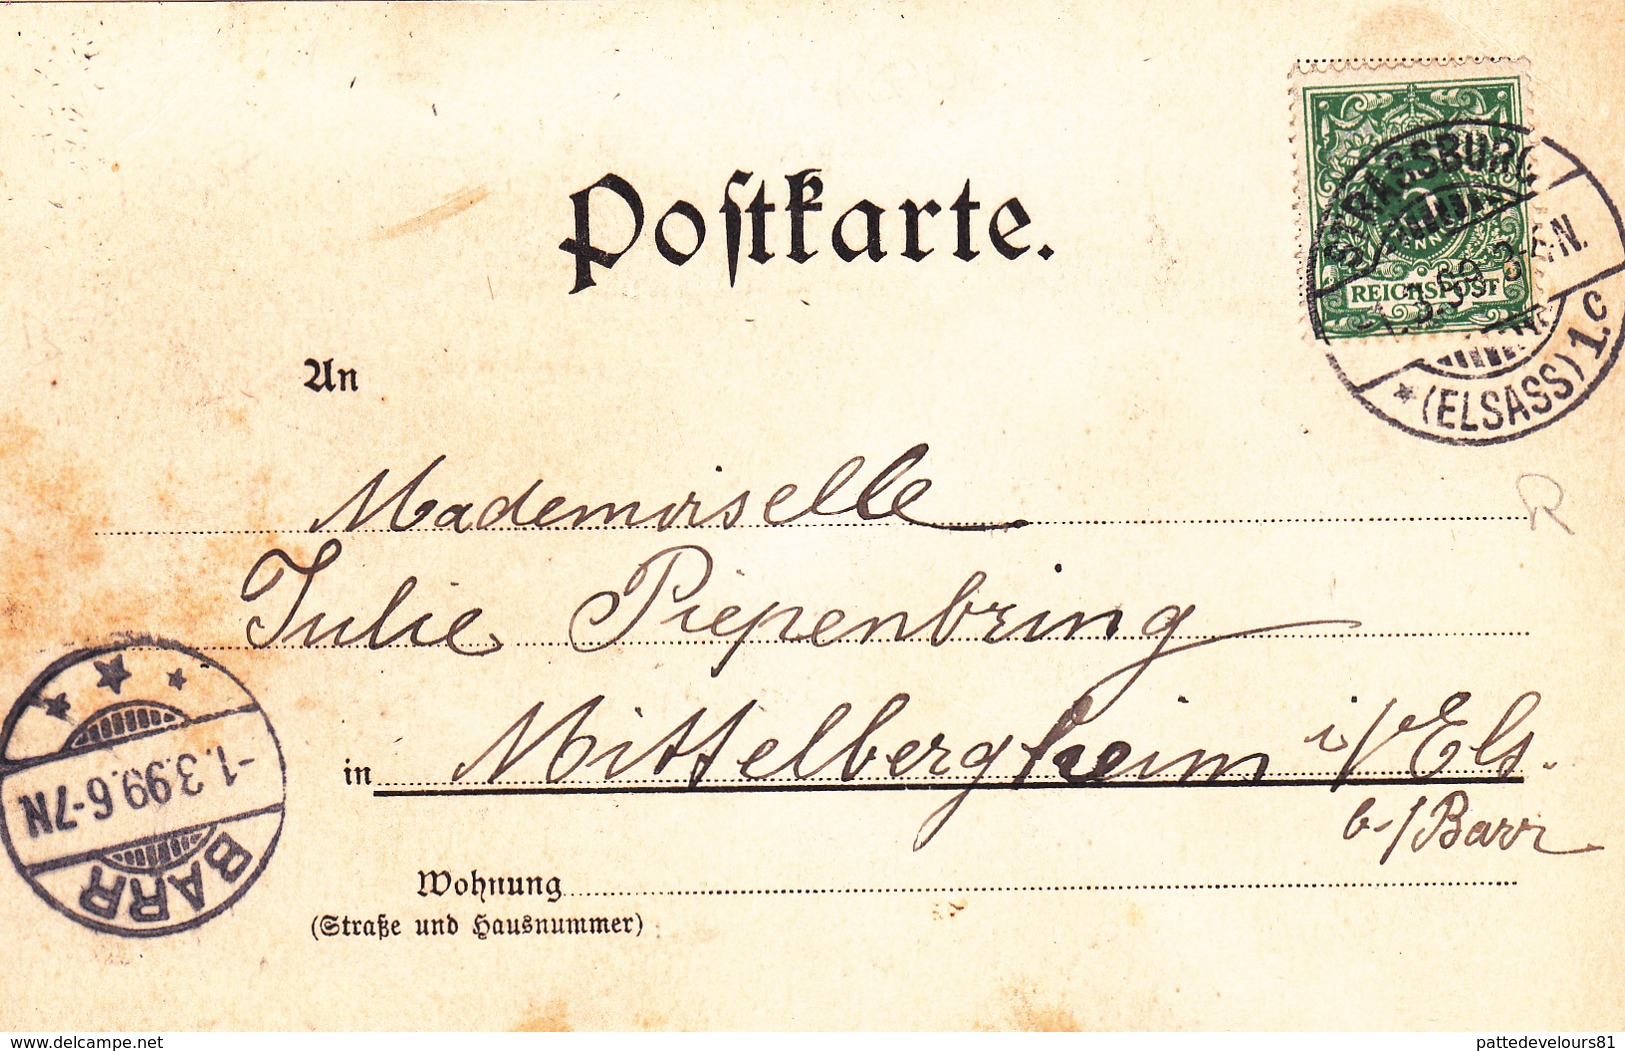 Postkarte.
REICHSPOST
STRASSBURG
(ELSASS) 1.c
An
Mademoiselle
Julie Piepenbring
in Mittelbergheim i/Els.
b./Barr
BARR
-1.3.99.6-7N
Wohnung
(Straße und Hausnummer)
delcampe.net
pattedevelours81